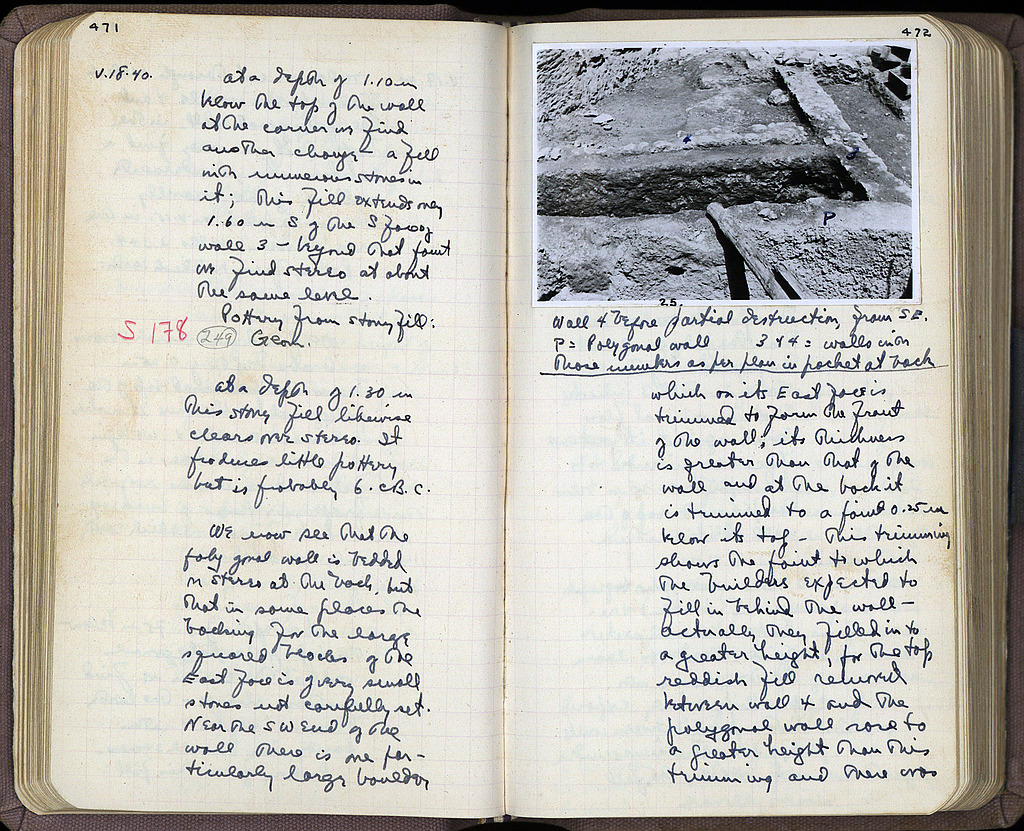 471
V.18.40. at a depth of 1.10 m
below the top of the wall
at the corner we find
another change – a fill
with numerous stones in
it; this fill extends only
1.60 m S of the S face of
wall 3 – beyond that point
we find stereo at about
the same level.
Pottery from stony fill:
S 178 249 Geom.
at a depth of 1.30 m
this stony fill likewise
clears over stereo. It
produces little pottery
but is probably 6. c B. C.
We now see that the
polygonal wall is bedded
on stereo at the back, but
that in some places the
backing for the large
squared blocks of the
East face is of very small
stones not carefully set.
Near the SW end of the
wall there is one par-
ticularly large boulder
472
P
25.
Wall 4 before partial destruction, from SE.
P = Polygonal wall 3 & 4 = walls with
those numbers as per plan in pocket at back
which on its East face is
trimmed to form the front
of the wall; its thickness
is greater than that of the
wall and at the back it
is trimmed to a point 0.25 m
below its top – This trimming
shows the point to which
the builders expected to
fill in behind the wall –
actually they filled in to
a greater height, for the top
reddish fill removed
between wall 4 and the
polygonal wall rose to
a greater height than this
trimming and there was